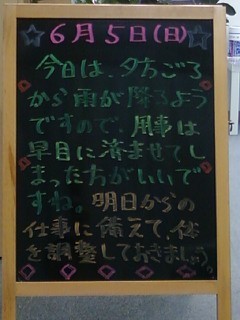 6月5日(日)
今日は、夕方ごろ
から雨が降るよう
ですので、用事は
早目に済ませてし
まった方がいいで
すね。明日からの
仕事に備えて、体
を調整しておきましょう。